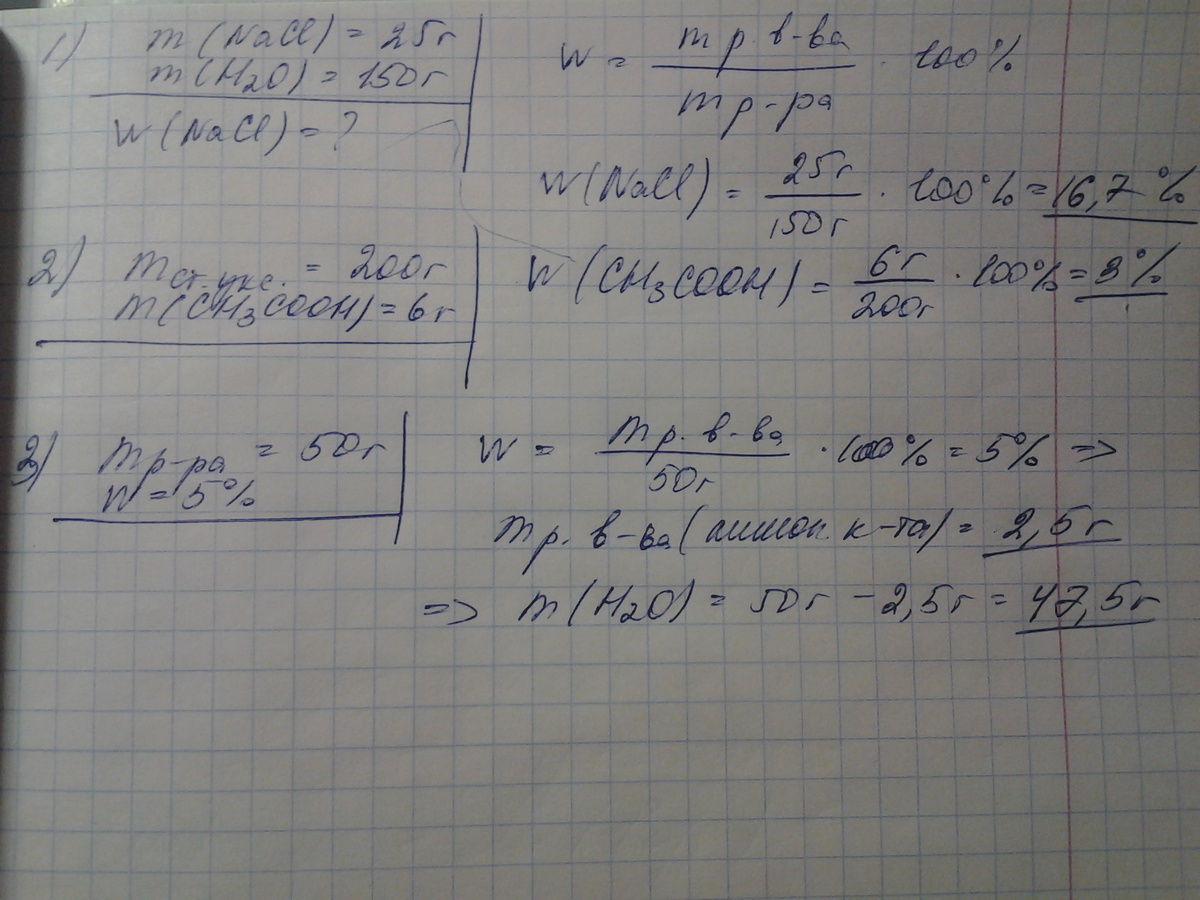 1) m (NaCl) = 25г
m(H2O) = 150г
W (NaCl) = ?
W = m р. в-ва / m р-ра · 100%
W(NaCl) = 25г / 150г · 100% = 16,7%
2) m ст. укс. = 200г
m(CH3COOH) = 6г
W (CH3COOH) = 6г / 200г · 100% = 3%
3) m р-ра = 50г
W = 5%
W = m р. в-ва / 50г · 100% = 5% =>
m р. в-ва (лимон. к-та) = 2,5г
=> m (H2O) = 50г - 2,5г = 47,5г